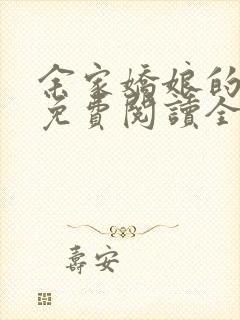 余家嬌娘的
免費閱讀全
壽安